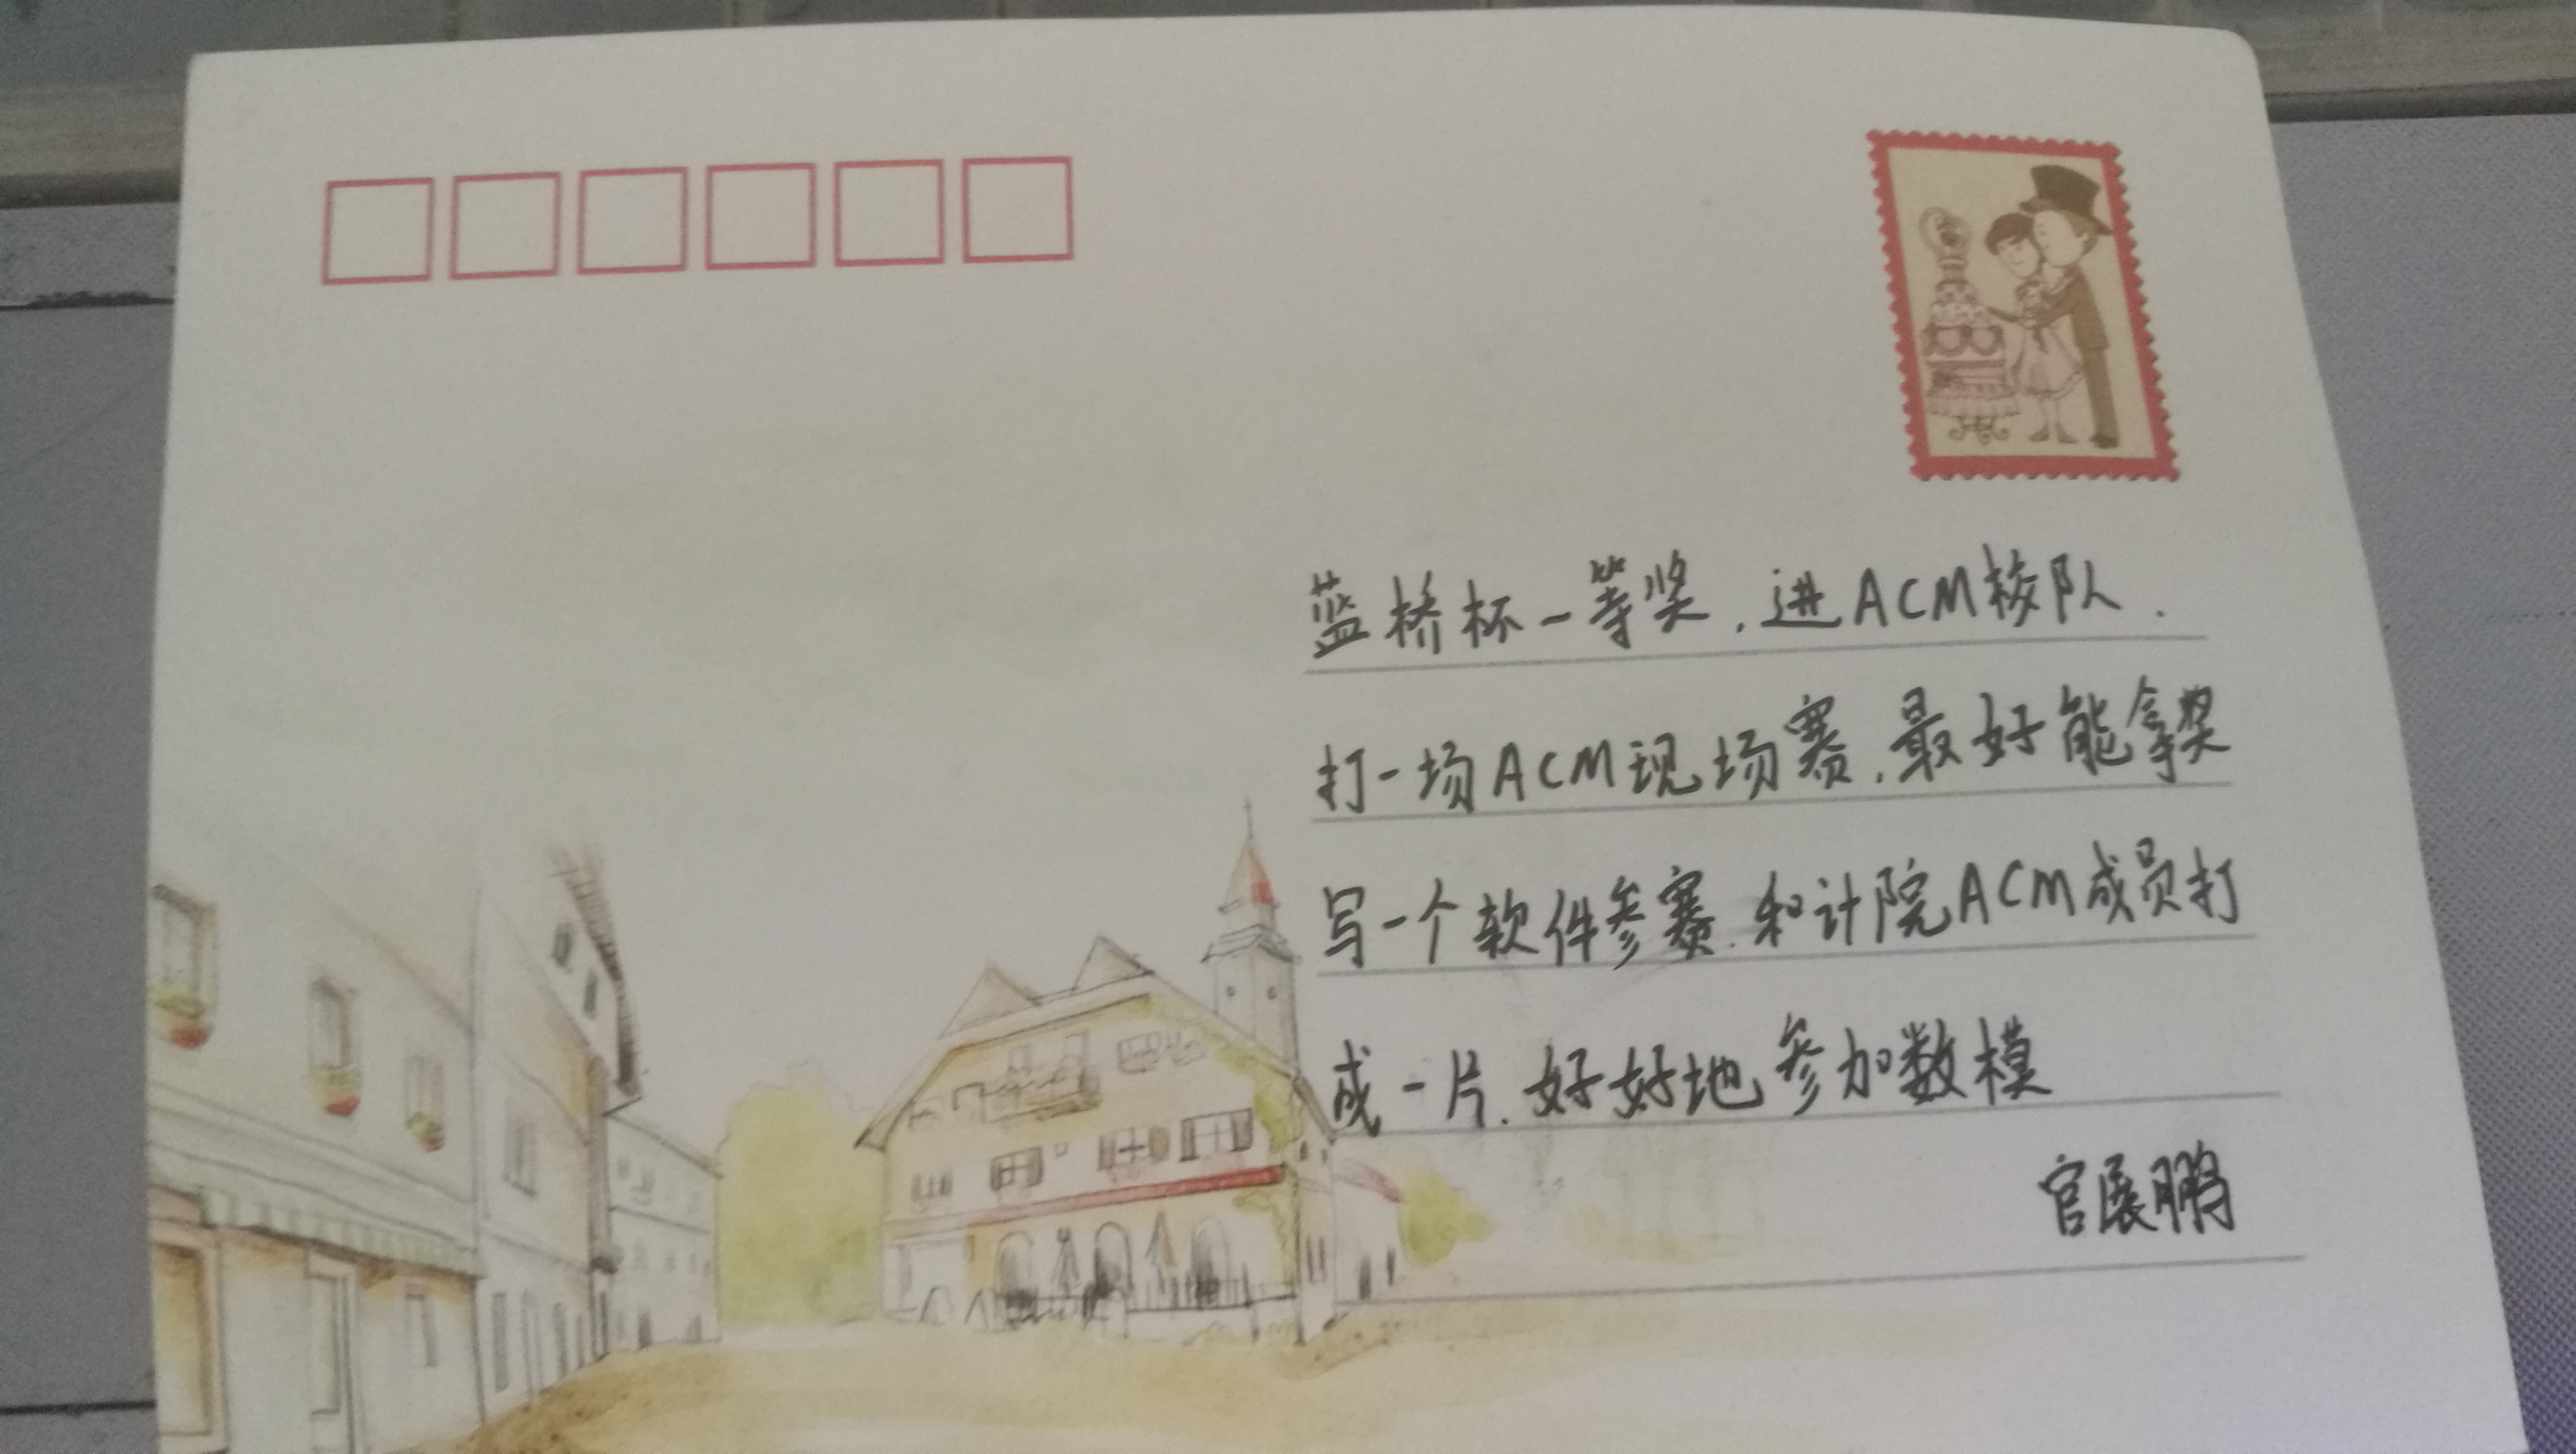 蓝桥杯一等奖，进ACM校队．
打一场ACM现场赛，最好能拿奖
写一个软件参赛．和计院ACM成员打
成一片．好好地参加数模
官展鹏